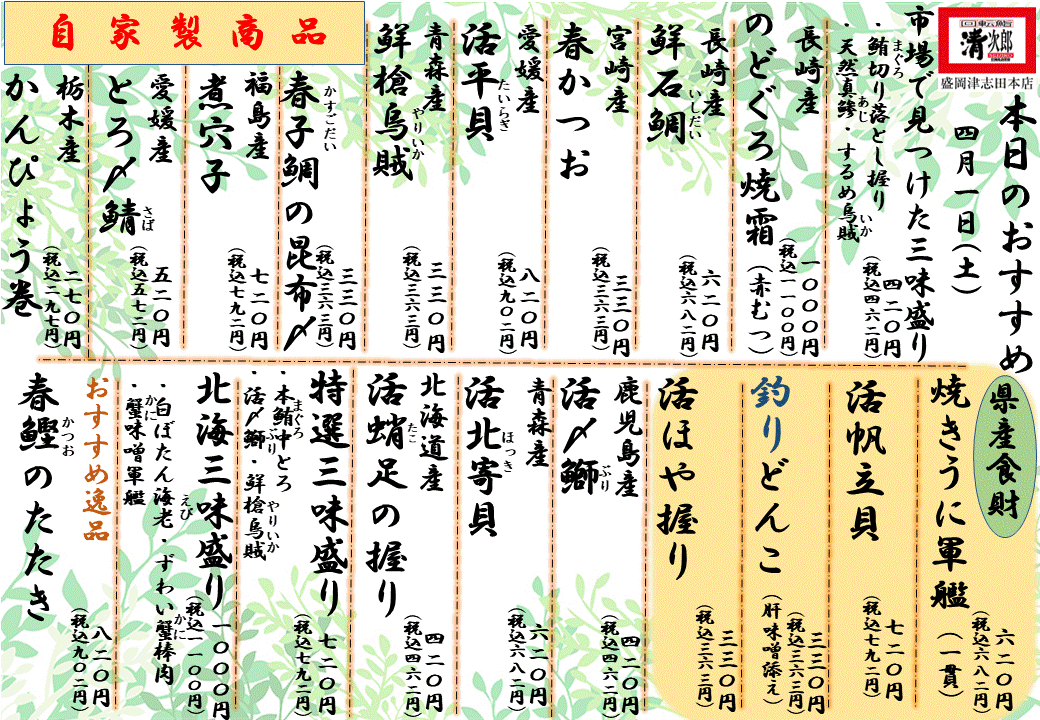 回転鮨
清次郎
盛岡津志田本店
本日のおすすめ
四月一日(土)
市場で見つけた三味盛り
・鮪切り落とし握り
まぐろ
・天然真鯵・するめ烏賊
あじ
いか
四二〇円
(税込四六二円)
長崎産
のどぐろ焼霜(赤むつ)
一〇〇〇円
(税込一一〇〇円)
長崎産
鮮石鯛
いしだい
六二〇円
(税込六八二円)
宮崎産
春かつお
三三〇円
(税込三六三円)
愛媛産
活平貝
たいらぎ
八二〇円
(税込九〇二円)
青森産
鮮槍烏賊
やりいか
三三〇円
(税込三六三円)
自家製商品
春子鯛の昆布〆
かすごだい
三三〇円
(税込三六三円)
福島産
煮穴子
七二〇円
(税込七九二円)
愛媛産
とろ〆鯖
さば
五二〇円
(税込五七二円)
栃木産
かんぴょう巻
二七〇円
(税込二九七円)
県産食財
焼きうに軍艦(一貫)
六二〇円
(税込六八二円)
活帆立貝
七二〇円
(税込七九二円)
釣りどんこ(肝味噌添え)
三三〇円
(税込三六三円)
活ほや握り
三三〇円
(税込三六三円)
鹿児島産
活〆鰤
ぶり
四二〇円
(税込四六二円)
青森産
活北寄貝
ほっき
六二〇円
(税込六八二円)
北海道産
活蛸足の握り
たこ
四二〇円
(税込四六二円)
特選三味盛り
・本鮪中とろ
まぐろ
・活〆鰤・鮮槍烏賊
ぶり
やりいか
七二〇円
(税込七九二円)
北海三味盛り
・白ぼたん海老・ずわい蟹棒肉
えび
かに
・蟹味噌軍艦
かに
一〇〇〇円
(税込一一〇〇円)
おすすめ逸品
春鰹のたたき
かつお
八二〇円
(税込九〇二円)